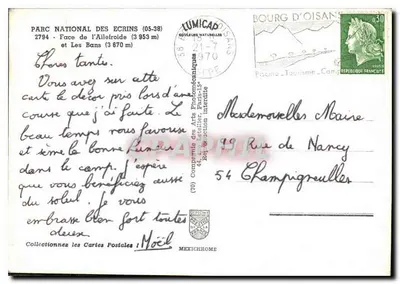 PARC NATIONAL DES ECRINS (05-38)
2794 - Face de l'Ailefroide (3 953 m)
et Les Bans (3 670 m)
Chères tantes.
Vous avez sur cette
carte le décor pris lors d'une
course que j'ai faite. Le
beau temps nous favorise
et sème la bonne humeur
dans le camp. J'espère
que vous bénéficiez aussi
du soleil. Je vous
embrasse bien fort toutes
deux.
Noël
Collectionnez les Cartes Postales :
MEXICHROME
LUMICAP
COULEURS NATURELLES
21-7
1970
BOURG D'OISANS
0,30
REPUBLIQUE FRANÇAISE
Mesdemoiselles Maire
99 Rue de Nancy
54 Champigneulles